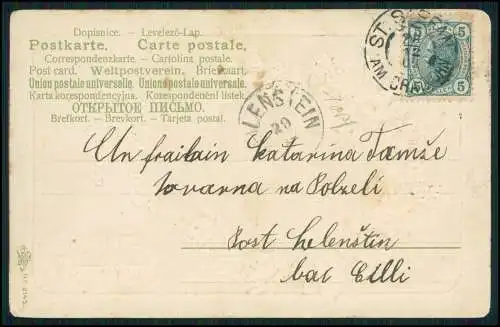 Dopisnice. — Levelező-Lap.
Postkarte. Carte postale.
Correspondenzkarte. — Cartolina postale.
Post card. Weltpostverein. Briefkaart.
Union postale universelle. Unione postale universale.
Karta korespondencyjna. Korespondenční lístek.
ОТКРЫТОЕ ПИСЬМО.
Brefkort. — Brevkort. — Tarjeta postal.
ST.
AM
5 5
LENSTEIN
29
Un frailain Katarina Tamže
tovarna na Polzeli
Post Helenštin
bai Cilli